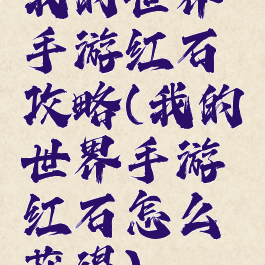 我的世界
手游红石
攻略(我的
世界手游
红石怎么
获得)